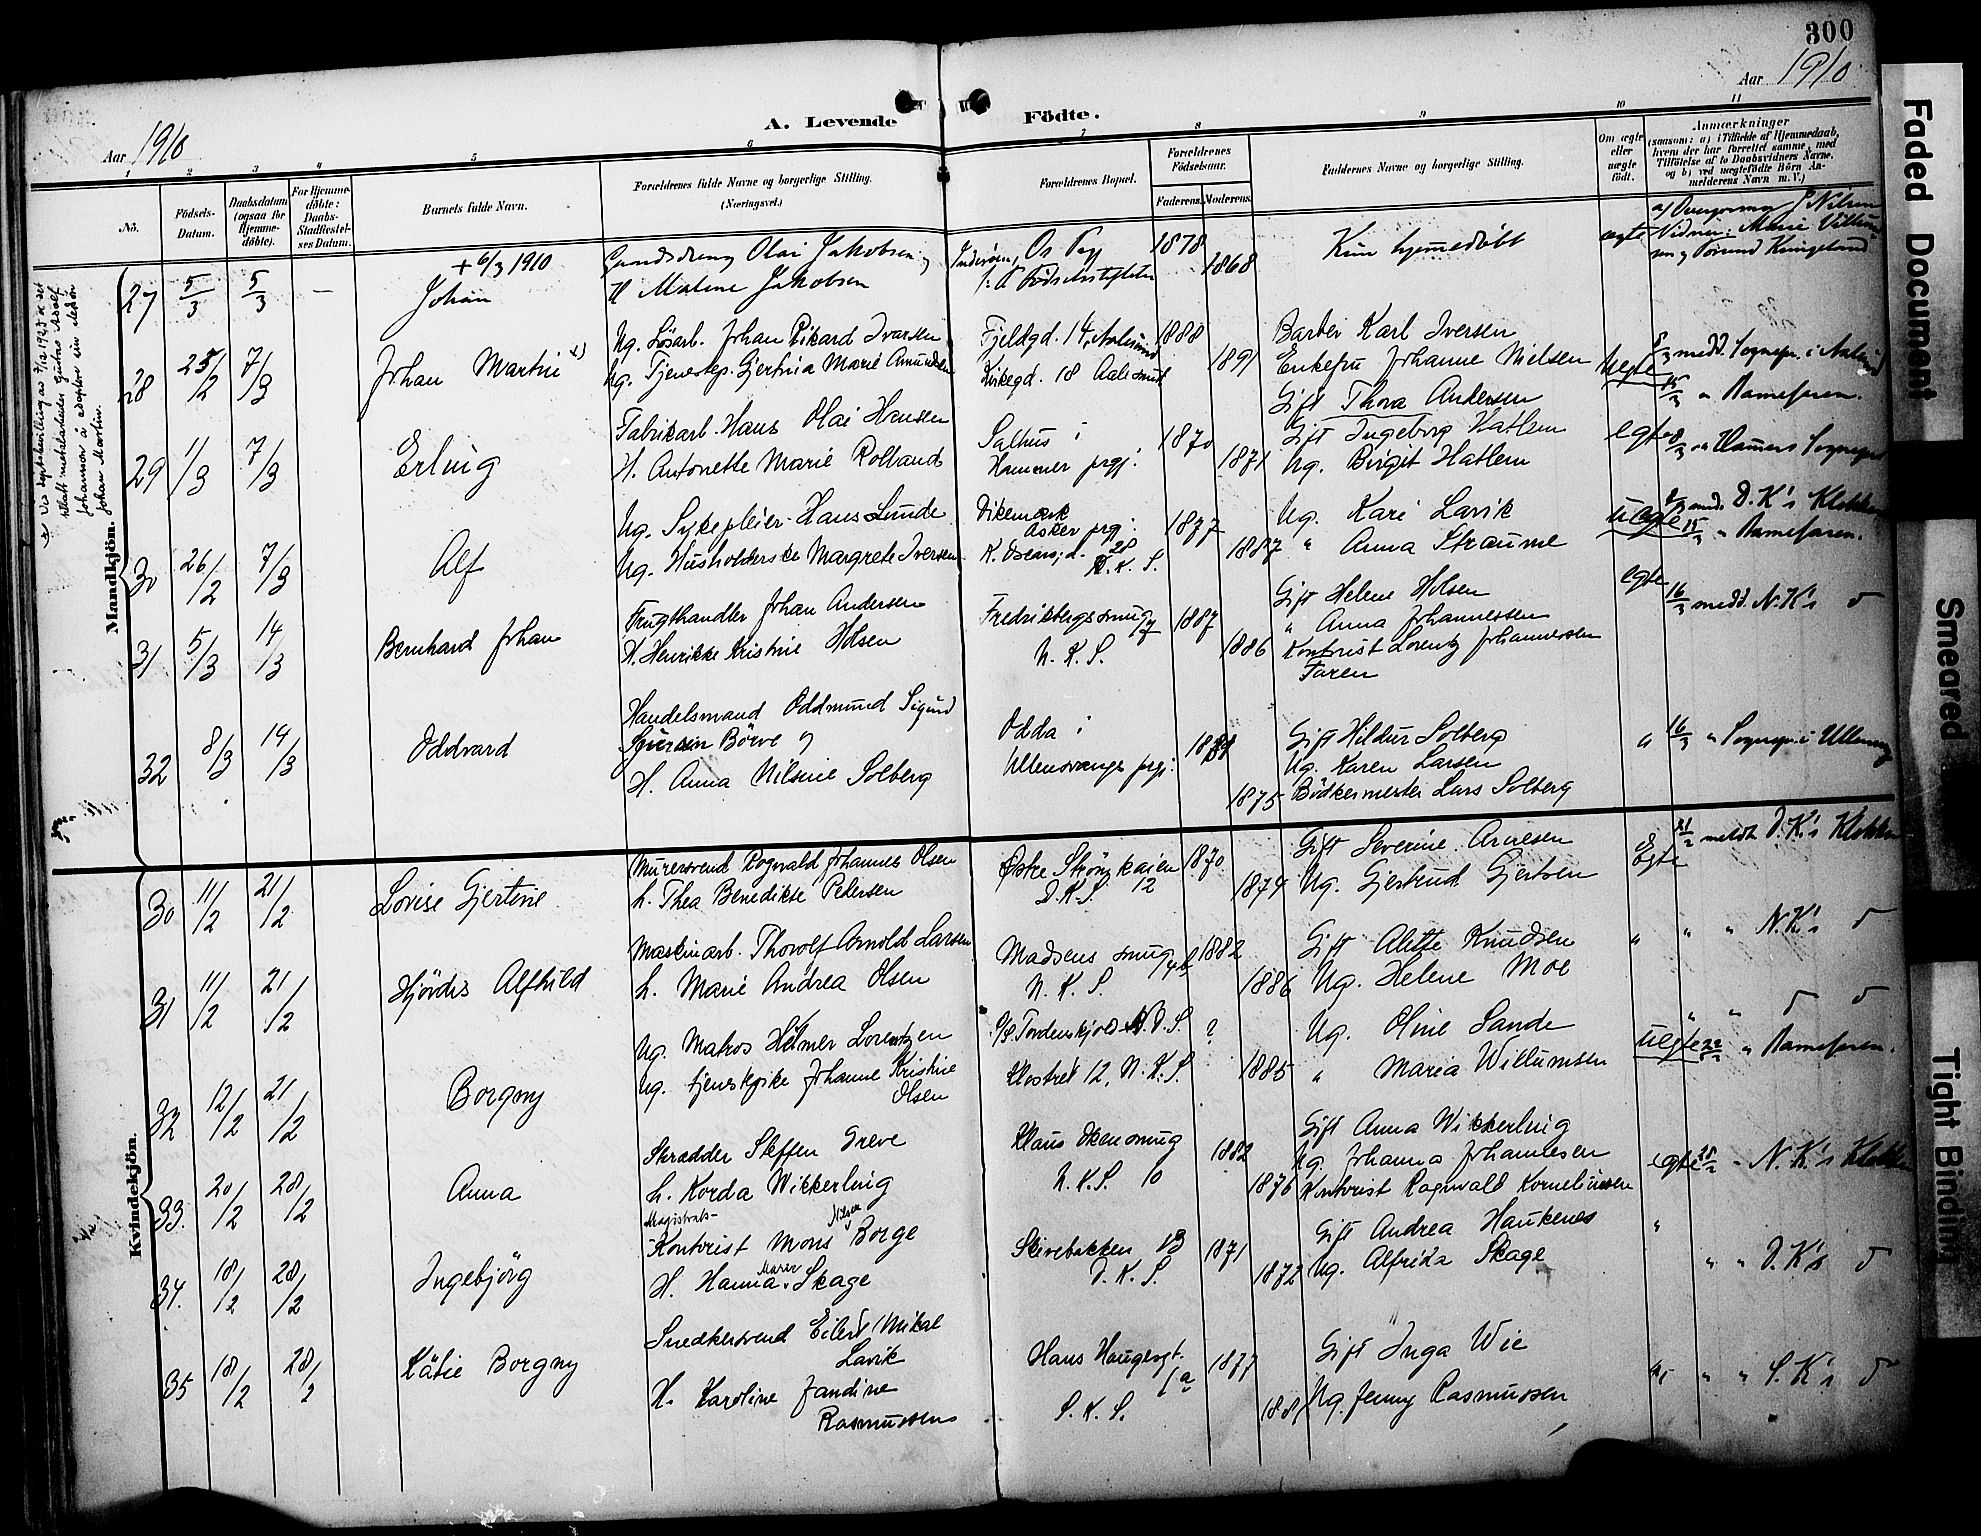 300
Aar 1910
Aar 1910
A. Levende Födte.
1 2 3 4 5 6 7 8 9 10 11
No.
Födsels-
Datum.
Daabsdatum
(ogsaa for
Hjemme-
döbte).
For Hjemme-
döbte:
Daabs-
Stadfæstel-
ses Datum.
Barnets fulde Navn.
Forældrenes fulde Navne og borgerlige Stilling.
(Næringsvei.)
Forældrenes Bopæl.
Forældrenes
Födselsaar.
Faderens. Moderens.
Faddernes Navne og borgerlige Stilling.
Om ægte
eller
uægte
födt.
Anmærkninger
(saasom: a) i Tilfælde af Hjemmedaab,
hvem der har forrettet samme, med
Tilföielse af to Daabsvidners Navne,
og b) ved uægtefödte Börn An-
melderens Navn m. V.)
Mandkjön.
27 5/3 5/3 —
+ 6/3 1910
Johan
Gaardsdreng Olai Jakobsen og
H. Malene Jakobsen
Os Pgj
Födselsstiftelsen
1878
1868
Kun hjemmedöbt
ægte
Vidner: Marie
28 25/2 7/3
Johan Martin x)
Ug. Lösarb. Johan Rikard Ivarsen
Ug. Tjenestep. Gjertina Marie Amundsen
Fjeldgd. 14, Aalesund
Kirkegd. 18 Aalesund
1888
1891
Barber Karl Iversen
Enkefru Johanne Nielsen
Gift Thora Andersen
Uegte
8/3 medd. Sognepr. i Aalesund
15/3 " Barnefaren.
29 1/3 7/3
Erling
Fabrikarb. Hans Olai Hansen
H. Antonette Marie Rolland
Salhus i
Hammer prgj.
1870
1871
Gift Ingeborg Hatlem
Ug. Birgit Hatlem
egte
8/3 " Hamers Sognepr.
30 26/2 7/3
Alf
Ug. Sykepleier Hans Lunde
Ug. Husholderske Margrete Iversen
Dikemark
Asker prgj.
K. Oscars g. 28
1877
1887
Ug. Kari Lavik
" Anna Straume
uegte
8/3 med. D.K's Klokker
15/3 " Barnefaren.
31 5/3 14/3
Bernhard Johan
Frugthandler Johan Andersen
H. Henrikke Kristine Holsen
Fredriksbergsmug 7
N. K. S.
1887
1886
Gift Helene Holsen
" Anna Johannessen
Kontorist Lorentz Johannessen
Faren
egte
16/3 medd. N.K's do
32 8/3 14/3
Oddvard
Handelsmand Oddmund Sigurd
Börve og
H. Anna Nilsine Solberg
Odda i
Ullensvangs prgj.
1875
Gift Hildur Solberg
Ug. Karen Larsen
Bödkermester Lars Solberg
"
16/3 " Sognepr. i Ullensvang
Kvindekjön.
30 11/2 21/2
Lovise Gjertine
Murersvend Rognvald Johannes Olsen
h. Thea Benedikte Petersen
Östre Strömkaien
D.K.S. 12
1870
1874
Gift Severine Arnesen
Ug. Gjertrud Gjertsen
Egte
21/2 meldt D.K's Klokker
31 11/2 21/2
Hjördis Alfhild
Maskinarb. Thorolf Arnold Larsen
h. Marie Andrea Olsen
Madsens smug
N. K. S.
1882
1886
Gift Alette Knudsen
Ug. Helene Moe
" " " N.K's do
32 12/2 21/2
Borgny
Ug. Matros Hilmer Lorentzen
Ug. tjenestepike Johanne Kristine
Olsen
S/S Tordenskjold N.D.S.
Klostret 12, N.K.S.
?
1885
Ug. Oline Sande
" Maria Willumsen
Uegte
" " do do
22/2 " Barnefaren.
33. 20/2 28/2
Anna
Skrædder Steffen Greve
h. Korda Wikkerling
Klaus Okensmug
N.K.S. 10
1882
1876
Gift Anna Wikkerling
Ug. Johanna Johannesen
Kontorist Ragnvald Korneliussen
egte
28/2 " N.K's Klokker
34. 18/2 28/2
Ingebjörg
Magistrats-
Kontorist Mons Nilsen Borge
H. Hanna Marie Skage
Skivebakken 13
D.K.S.
1871
1872
Gift Andrea Haukenes
Ug. Alfrida Skage
"
" " D.K's do
35 18/2 28/2
Kätie Borgny
Snedkersvend Eilert Mikal
Lavik
H. Karoline Jandine
Rasmussen
Hans Haugesgt.
1a
S.K.S.
1877
1881
Gift Inga Wie
Ug. Jenny Rasmussen
" " S.K's do
Faded Document
Smeared
Tight Binding